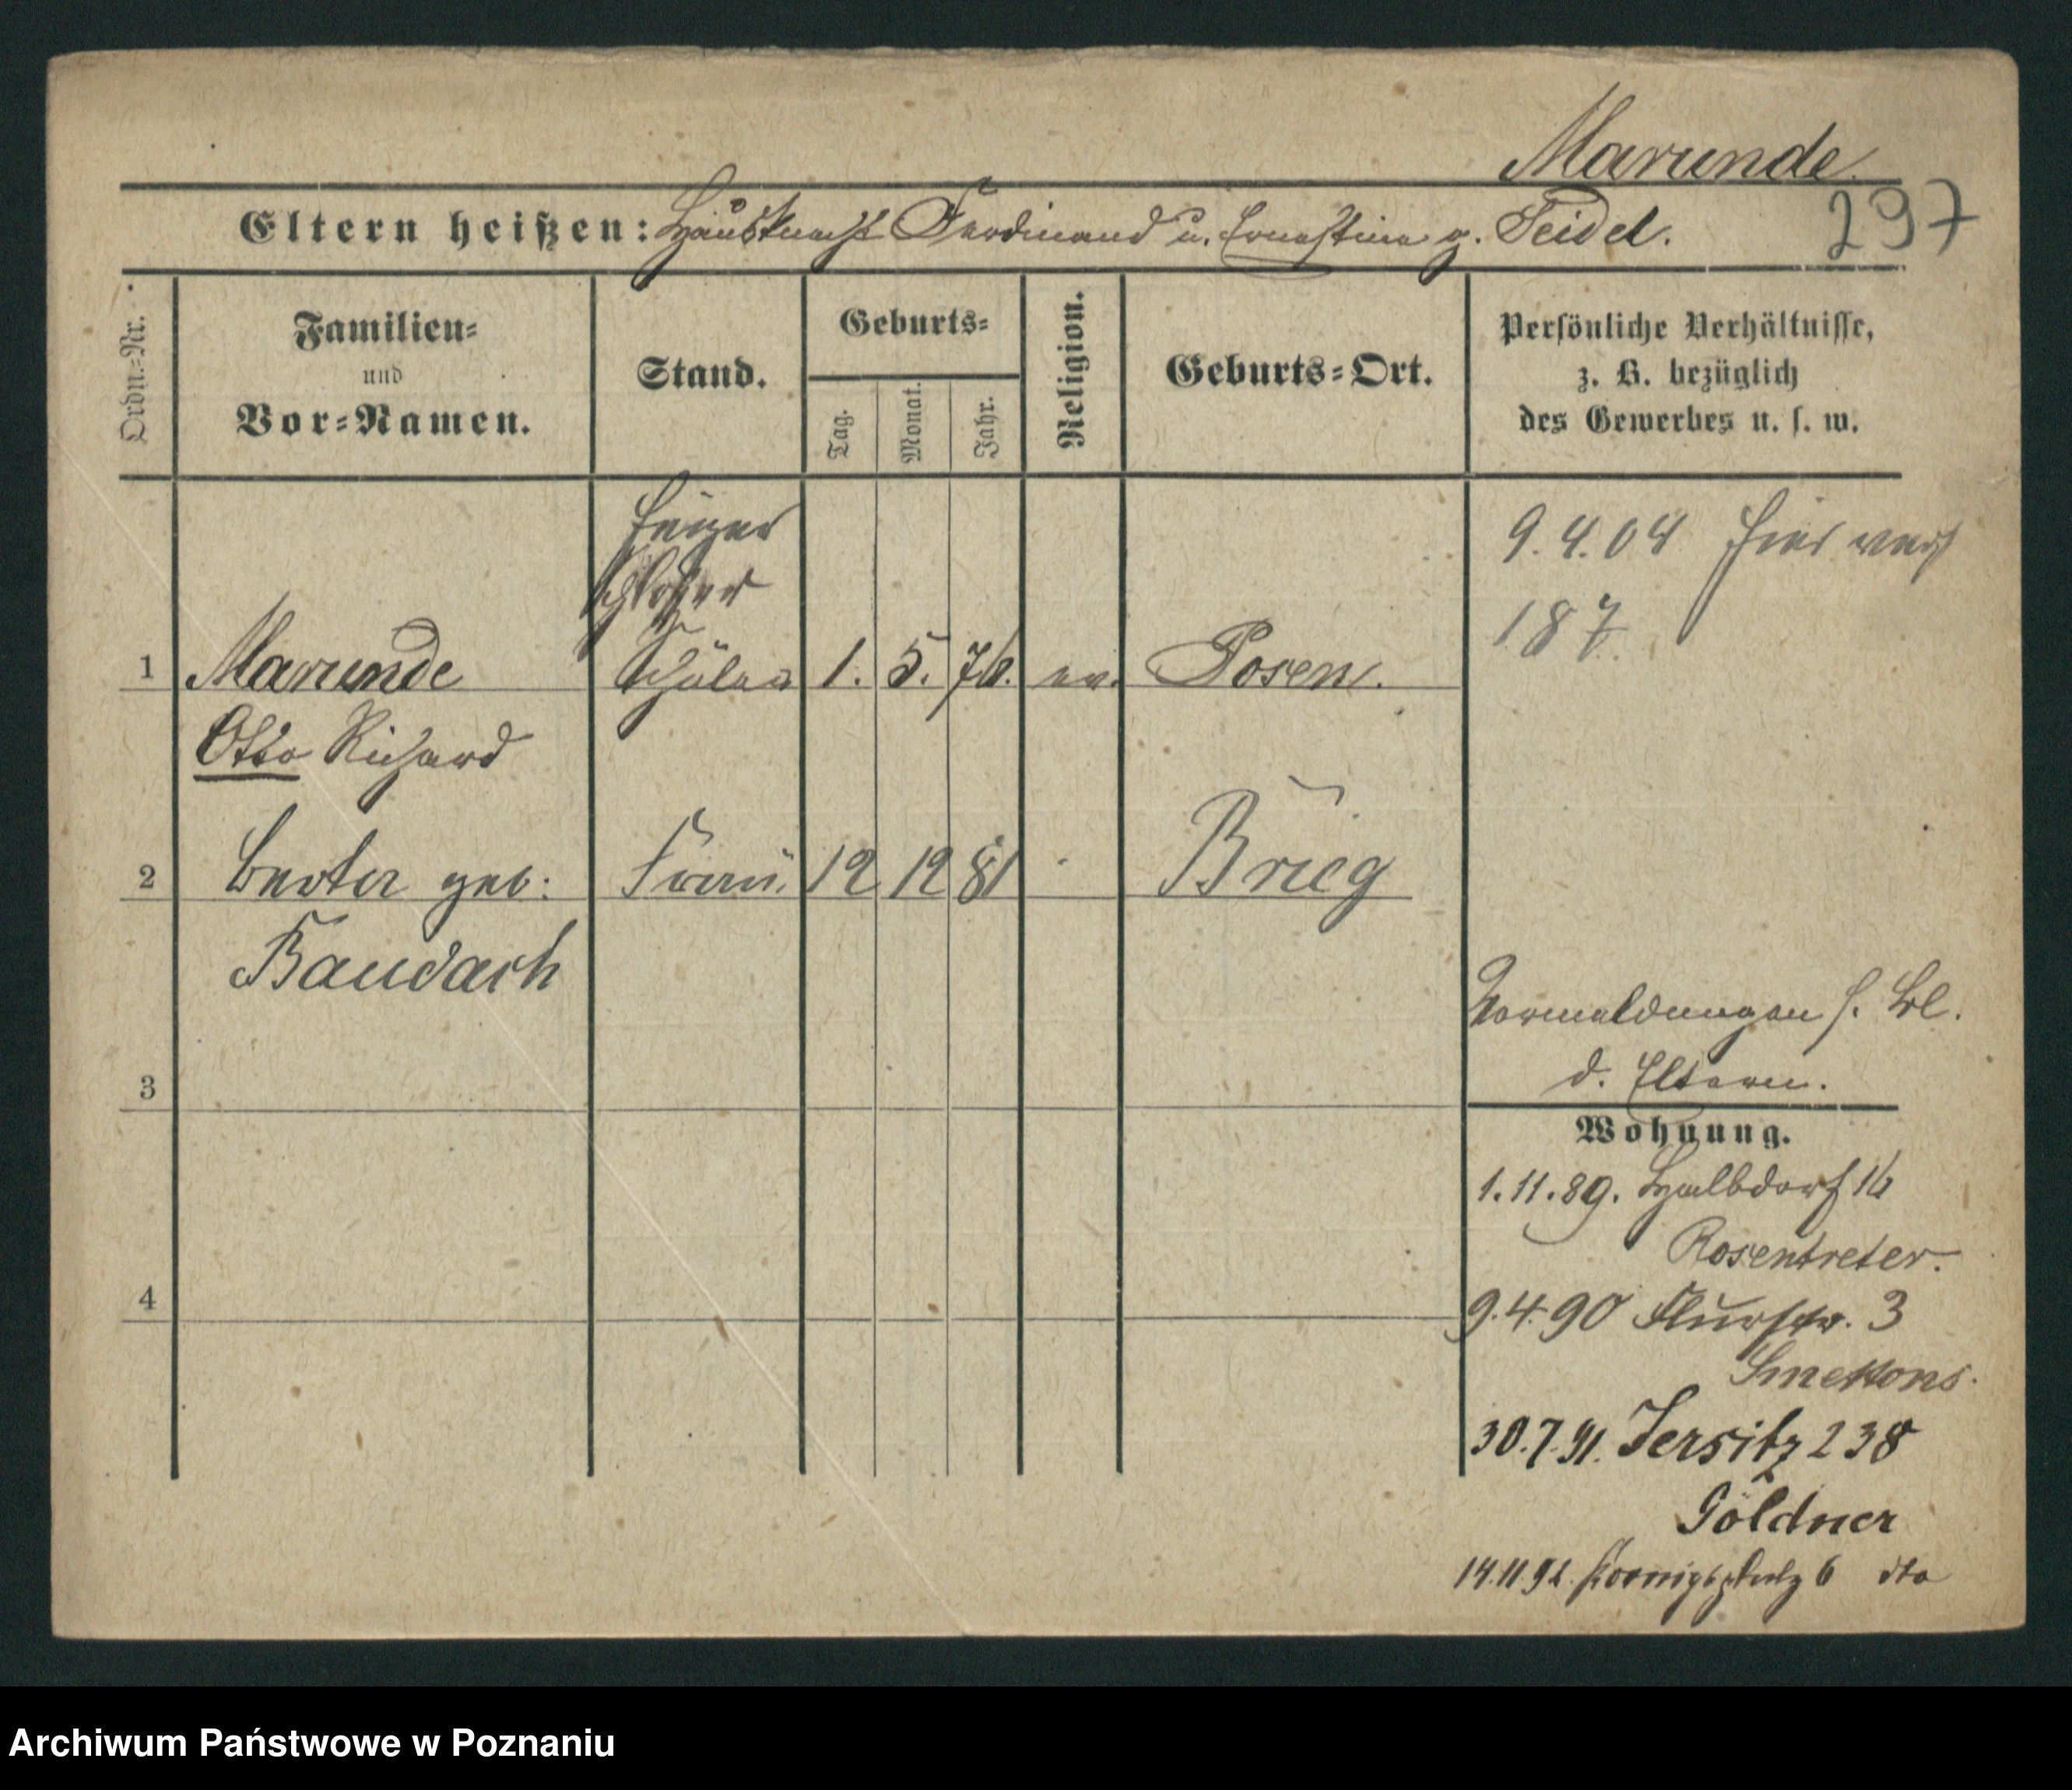 Marunde
297
Eltern heißen: Hausknecht Ferdinand u. Ernestine g. Seidel.
Ordn.-Nr.
Familien-
und
Vor-Namen.
Stand.
Geburts-
Tag.
Monat.
Jahr.
Religion.
Geburts-Ort.
Persönliche Verhältnisse,
z. B. bezüglich
des Gewerbes u. s. w.
Heizer
Schlosser
1 Marunde Schüler 1. 5. 76. ev. Posen.
Otto Richard
9.4.04 hier
187.
2 geb: Frau. 12 12 81 Brieg
Baudach
Vormeldungen s. Bl.
d. Eltern.
3
Wohnung.
1.11.89. Halbdorf 16
Rosentreter.
4
9.4.90 Flurstr. 3
30.7.91. Jersitz 238
Göldner
14.11.92. Koenigsplatz 6 dto
Archiwum Państwowe w Poznaniu